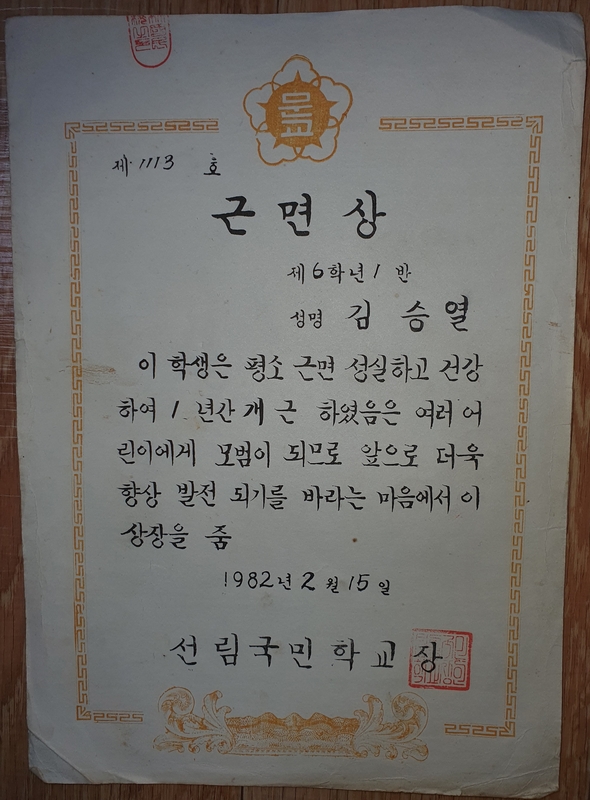 문교
제 1113 호
근면상
제6학년 1 반
성명 김 승 열
이 학생은 평소 근면 성실하고 건강
하여 1 년간 개 근 하였음은 여러 어
린이에게 모범이 되므로 앞으로 더욱
향상 발전 되기를 바라는 마음에서 이
상장을 줌
1982년 2 월 15 일
선림국민학교장